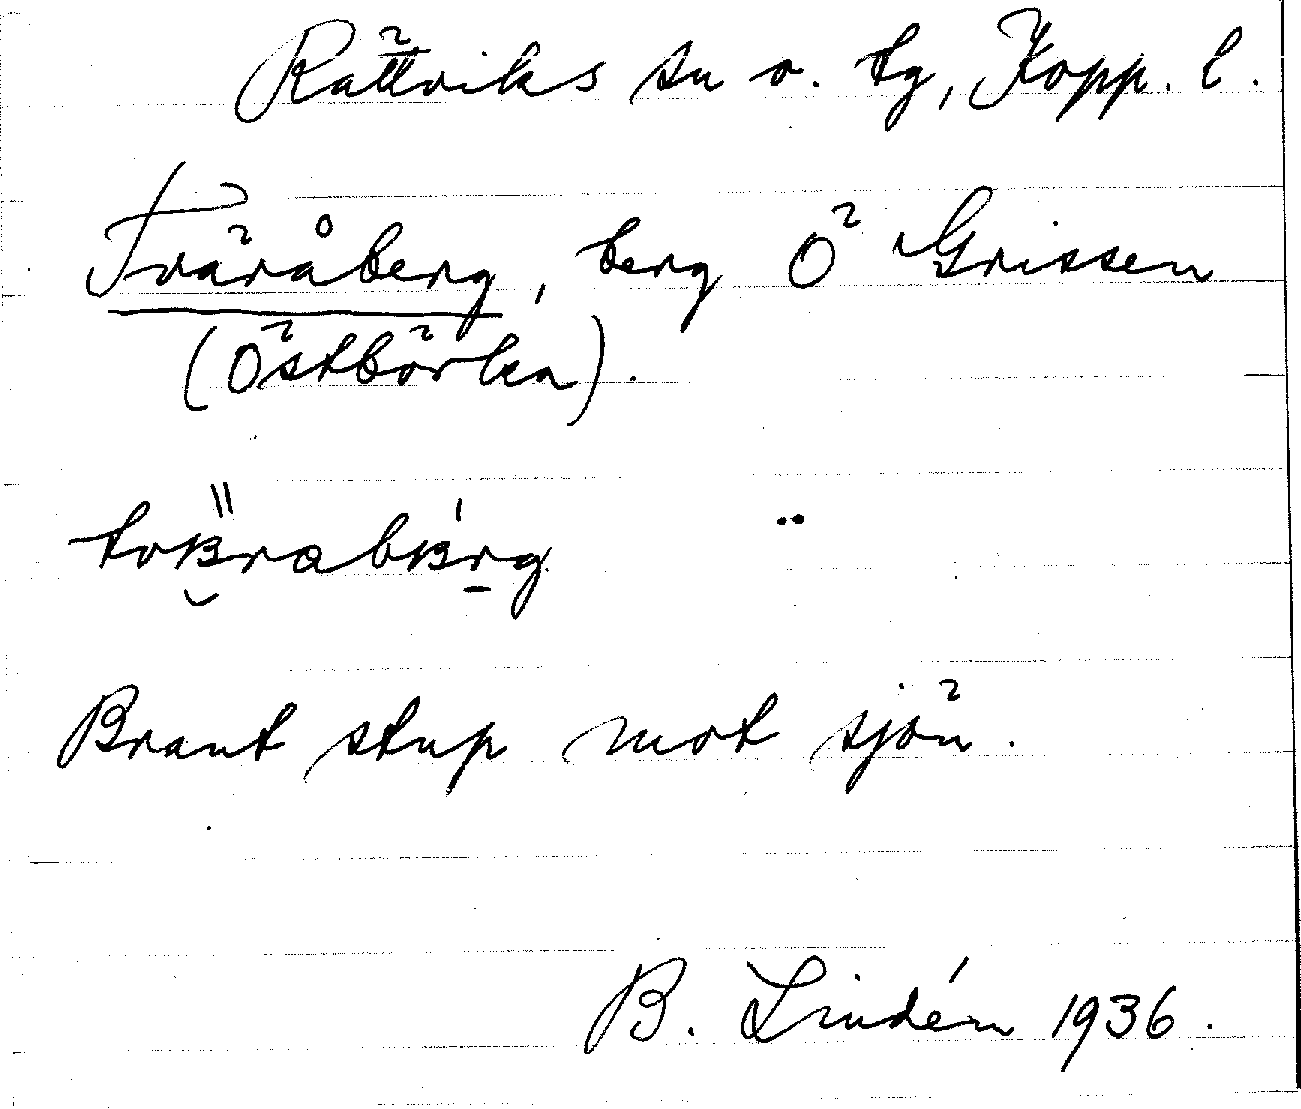 Rättviks sn o. tg, Kopp. l.
Tväråberg, berg Ö Grissen
(Östbörka).
Brant stup mot sjön.
B. Lindén 1936.